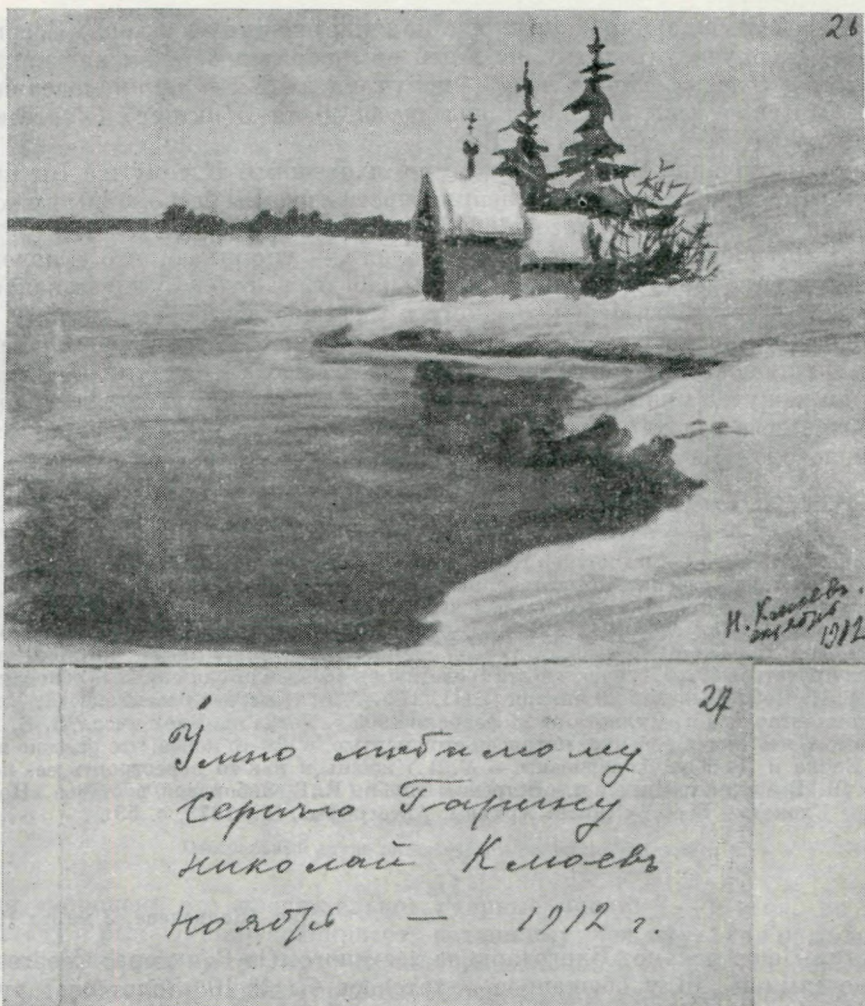 26
Н. Клюевъ.
октябрь
1912
27
Умно любимому
Сергию Гарину
николай Клюевъ
ноябрь — 1912 г.